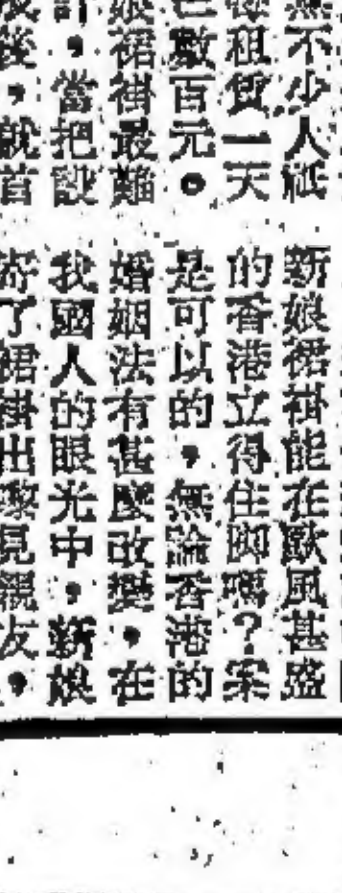 不少人祇
租賃一天
數百元。
裙褂最難
。當把
後，就首
新娘裙褂能在歐風甚盛
的香港立得住脚嗎？案
是可以的，無論香港的
婚姻法有甚麼改變，在
我國人的眼光中，新娘
寄了裙褂出嚟見親友，